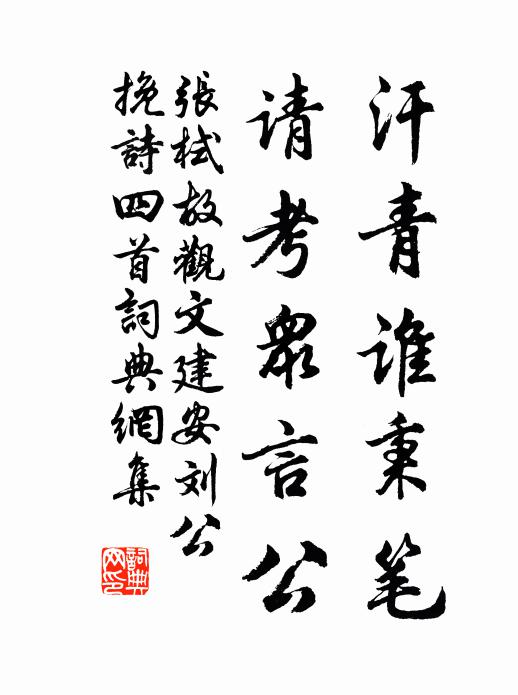 汗青谁秉笔
请考眾言公
張栻故觀文建安刘公
挽詩四首詞典網集
詞典网印